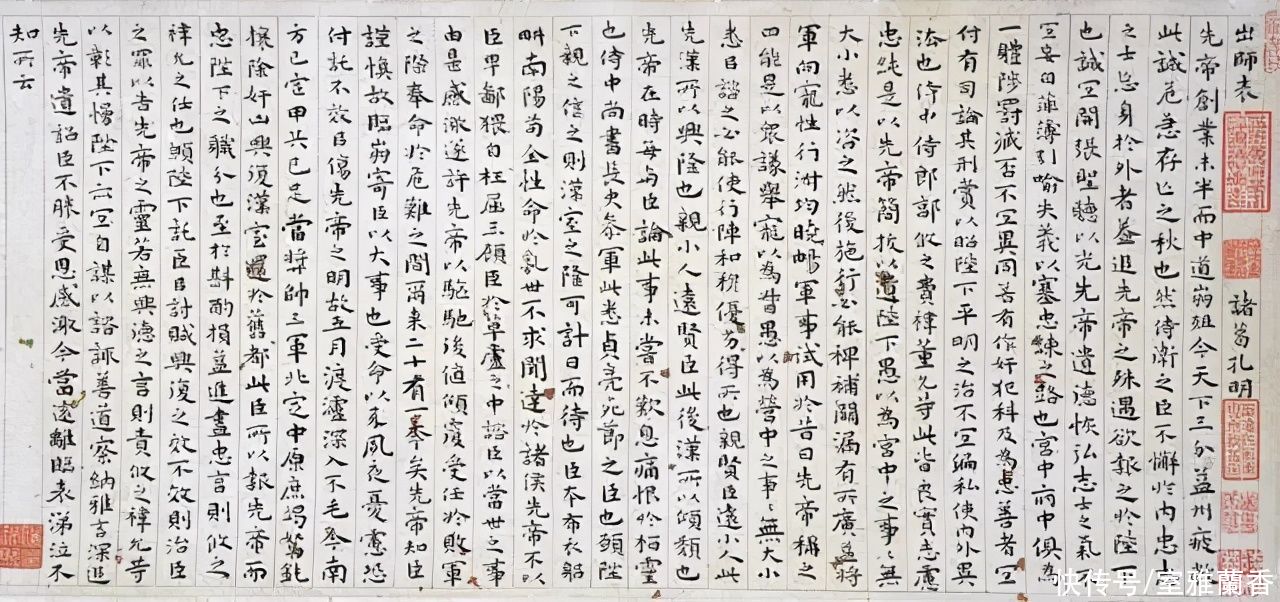 出師表 諸葛孔明
先帝創業未半而中道崩殂今天下三分益州疲敝
此誠危急存亡之秋也然侍衛之臣不懈於內忠志
之士忘身於外者蓋追先帝之殊遇欲報之於陛下
也誠宜開張聖聽以光先帝遺德恢弘志士之氣不
宜妄自菲薄引喻失義以塞忠諫之路也宮中府中俱為
一體陟罰臧否不宜異同若有作奸犯科及為忠善者宜
付有司論其刑賞以昭陛下平明之治不宜偏私使內外異
法也侍中侍郎郭攸之費禕董允等此皆良實志慮
忠純是以先帝簡拔以遺陛下愚以為宮中之事〻無
大小悉以咨之然後施行必能裨補闕漏有所廣益將
軍向寵性行淑均曉暢軍事試用於昔日先帝稱之
曰能是以眾議舉寵以為督愚以為營中之事〻無大小
悉以諮之必能使行陣和穆優劣得所也親賢臣遠小人此
先漢所以興隆也親小人遠賢臣此後漢所以傾頹也
先帝在時每与臣論此事未嘗不歎息痛恨於桓靈
也侍中尚書長史參軍此悉貞亮死節之臣也願陛
下親之信之則漢室之隆可計日而待也臣本布衣躬
畊南陽苟全性命於亂世不求聞達於諸侯先帝不以
臣卑鄙猥自枉屈三顧臣於草廬之中諮臣以當世之事
由是感激遂許先帝以驅馳後值傾覆受任於敗軍
之際奉命於危難之間爾來二十有一年矣先帝知臣
謹慎故臨崩寄臣以大事也受命以來夙夜憂慮恐
付託不效以傷先帝之明故五月渡瀘深入不毛今南
方已定甲兵已足當獎帥三軍北定中原庶竭駑鈍
攘除奸凶興復漢室還於舊都此臣所以報先帝而
忠陛下之職分也至於斟酌損益進盡忠言則攸之
禕允之任也願陛下託臣以討賊興復之效不效則治臣
之罪以告先帝之靈若無興德之言則責攸之禕允等
以彰其慢陛下亦宜自謀以諮諏善道察納雅言深追
先帝遺詔臣不勝受恩感激今當遠離臨表涕泣不
知所云
快传号/室雅蘭香